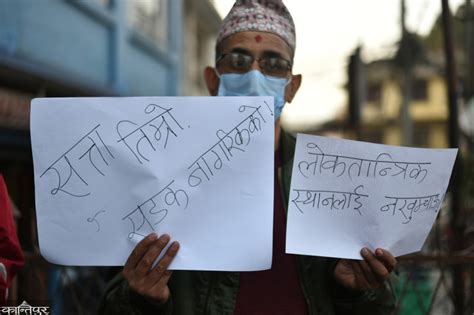 सत्ता तिम्रो.
र सडक नागरिकको!
लोकतान्त्रिक
स्थानलाई नखुम्चाऊ
कान्तिपुर